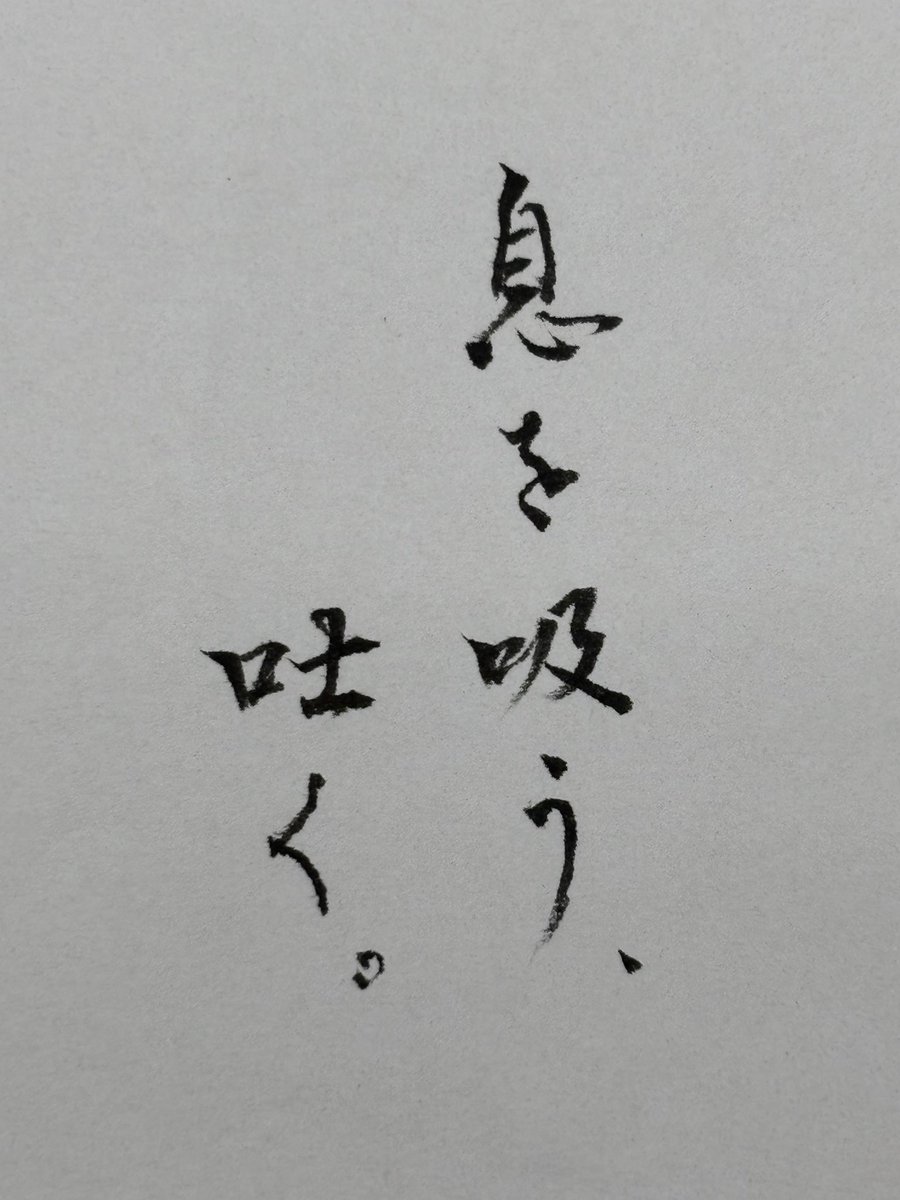 息を吸う、
吐く。